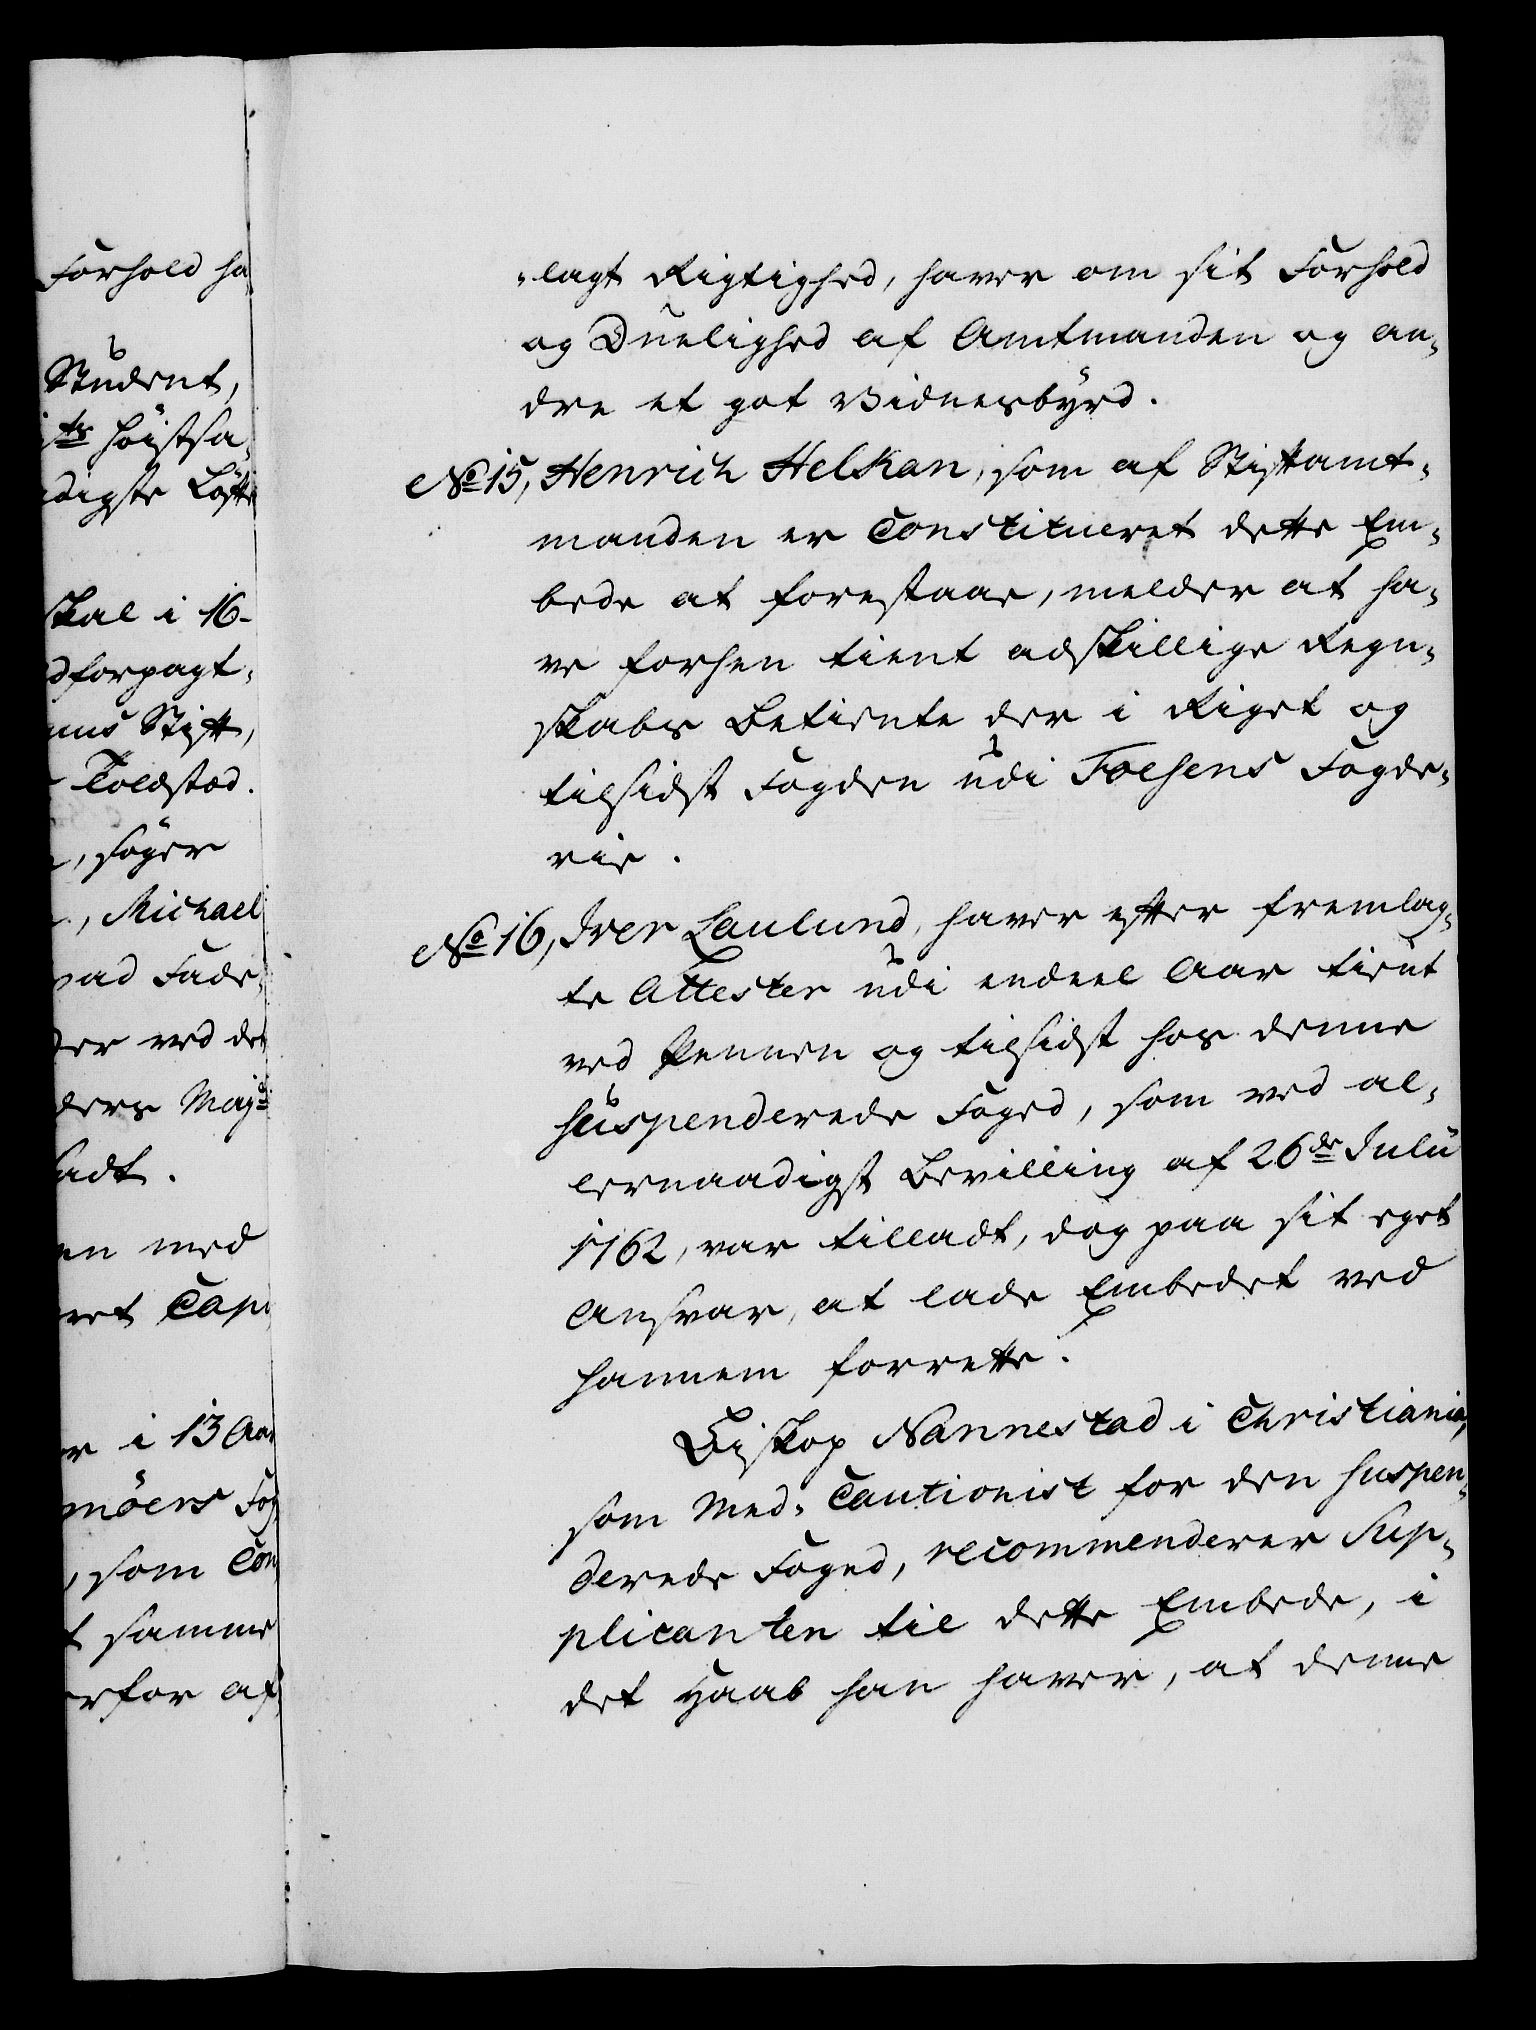 Forhold ha
Student,
ts höistsa-
digste Löfte
skal i 16-
dforpagt-
uus Stift,
Toldsted.
, söger
, Michael
Fade-
der ved det
ders Majts
ladt.
en med
ret Cap-
r i 13 Aar
möers Fog
, som Con
t samme
erfor af
-lagt Rigtighed, haver om sit Forhold
og Duelighed af Amtmanden og an-
dre et got Vidnesbyrd.
No 15, Henrich Helkan, som af Stiftamt-
manden er Constitueret dette Em-
bede at forestaae, melder at ha-
ve forhen tient adskillige Regn-
skabs Betiente der i Riget og
tilsidst Fogden udi Foesens Fogde-
rie.
No 16, Iver Laulund, haver efter fremlag-
te Attester udi endeel Aar tient
ved Pennen og tilsidst hos denne
suspenderede Foged, som ved al-
lernaadigst Bevilling af 26de Julii
1762, var tilladt, dog paa sit eget
Ansvar, at lade Embedet ved
hannem forrette.
Biskop Nannestad i Christiania,
som Med-Cautionist for den suspen-
derede Foged, recommenderer Sup-
plicanten til dette Embede, i
det Haab han haver, at denne